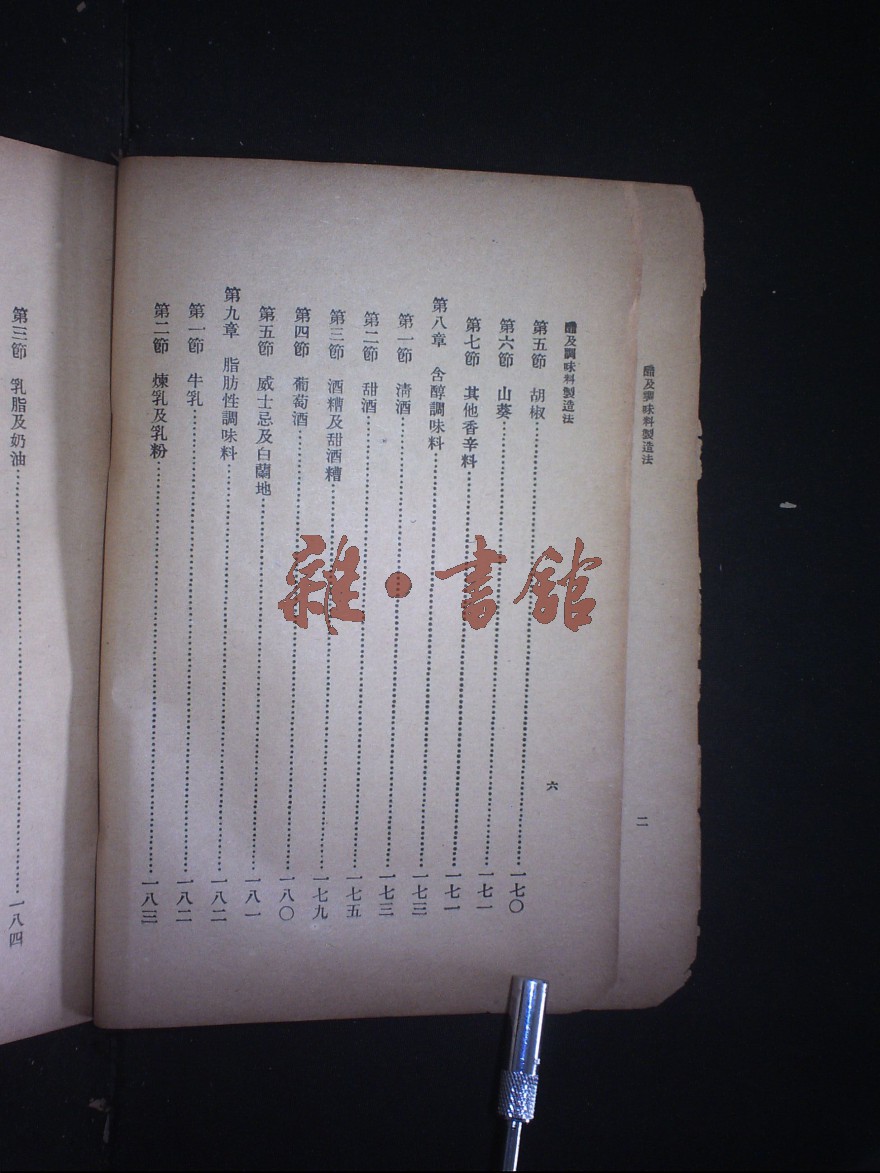 醋及調味料製造法
二
醋及調味料製造法
六
第五節 胡椒……一七〇
第六節 山葵……一七一
第七節 其他香辛料……一七一
第八章 含醇調味料……一七三
第一節 清酒……一七三
第二節 甜酒……一七五
第三節 酒糟及甜酒糟……一七九
第四節 葡萄酒……一八〇
第五節 威士忌及白蘭地……一八一
第九章 脂肪性調味料……一八二
第一節 牛乳……一八二
第二節 煉乳及乳粉……一八三
第三節 乳脂及奶油……一八四
雜·書館